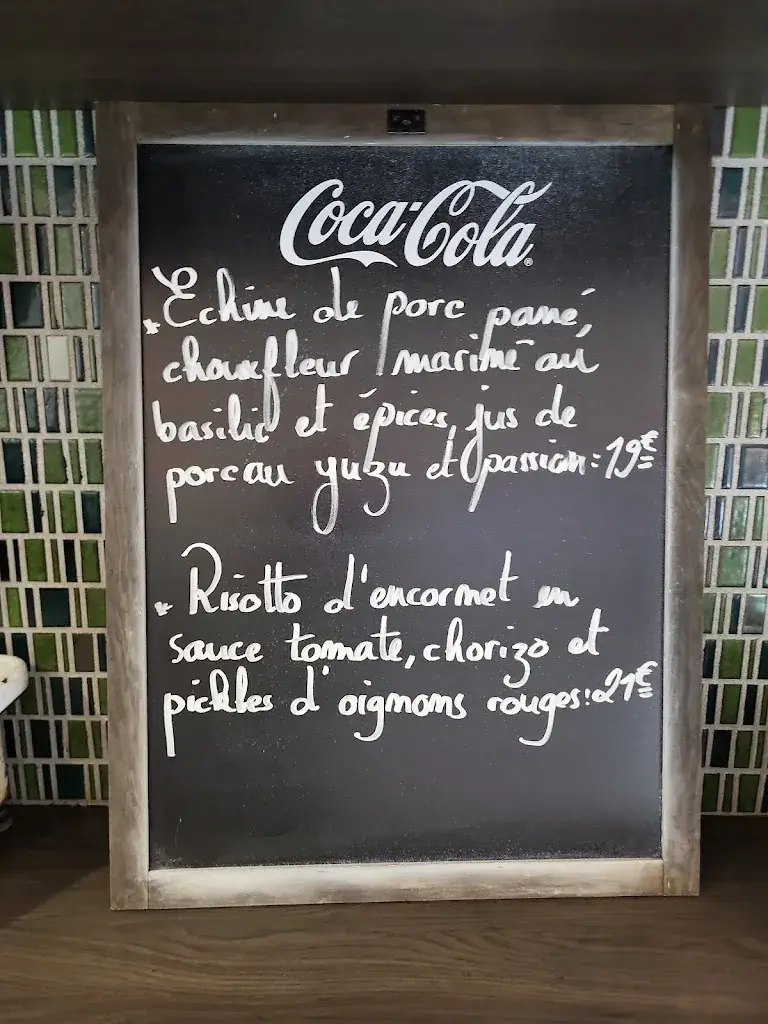 Coca-Cola
* Echine de porc pané,
chouxfleur / mariné au
basilic et épices, jus de
porc au yuzu et passion : 19€
* Risotto d'encornet en
sauce tomate, chorizo et
pickles d'oignons rouges : 21€